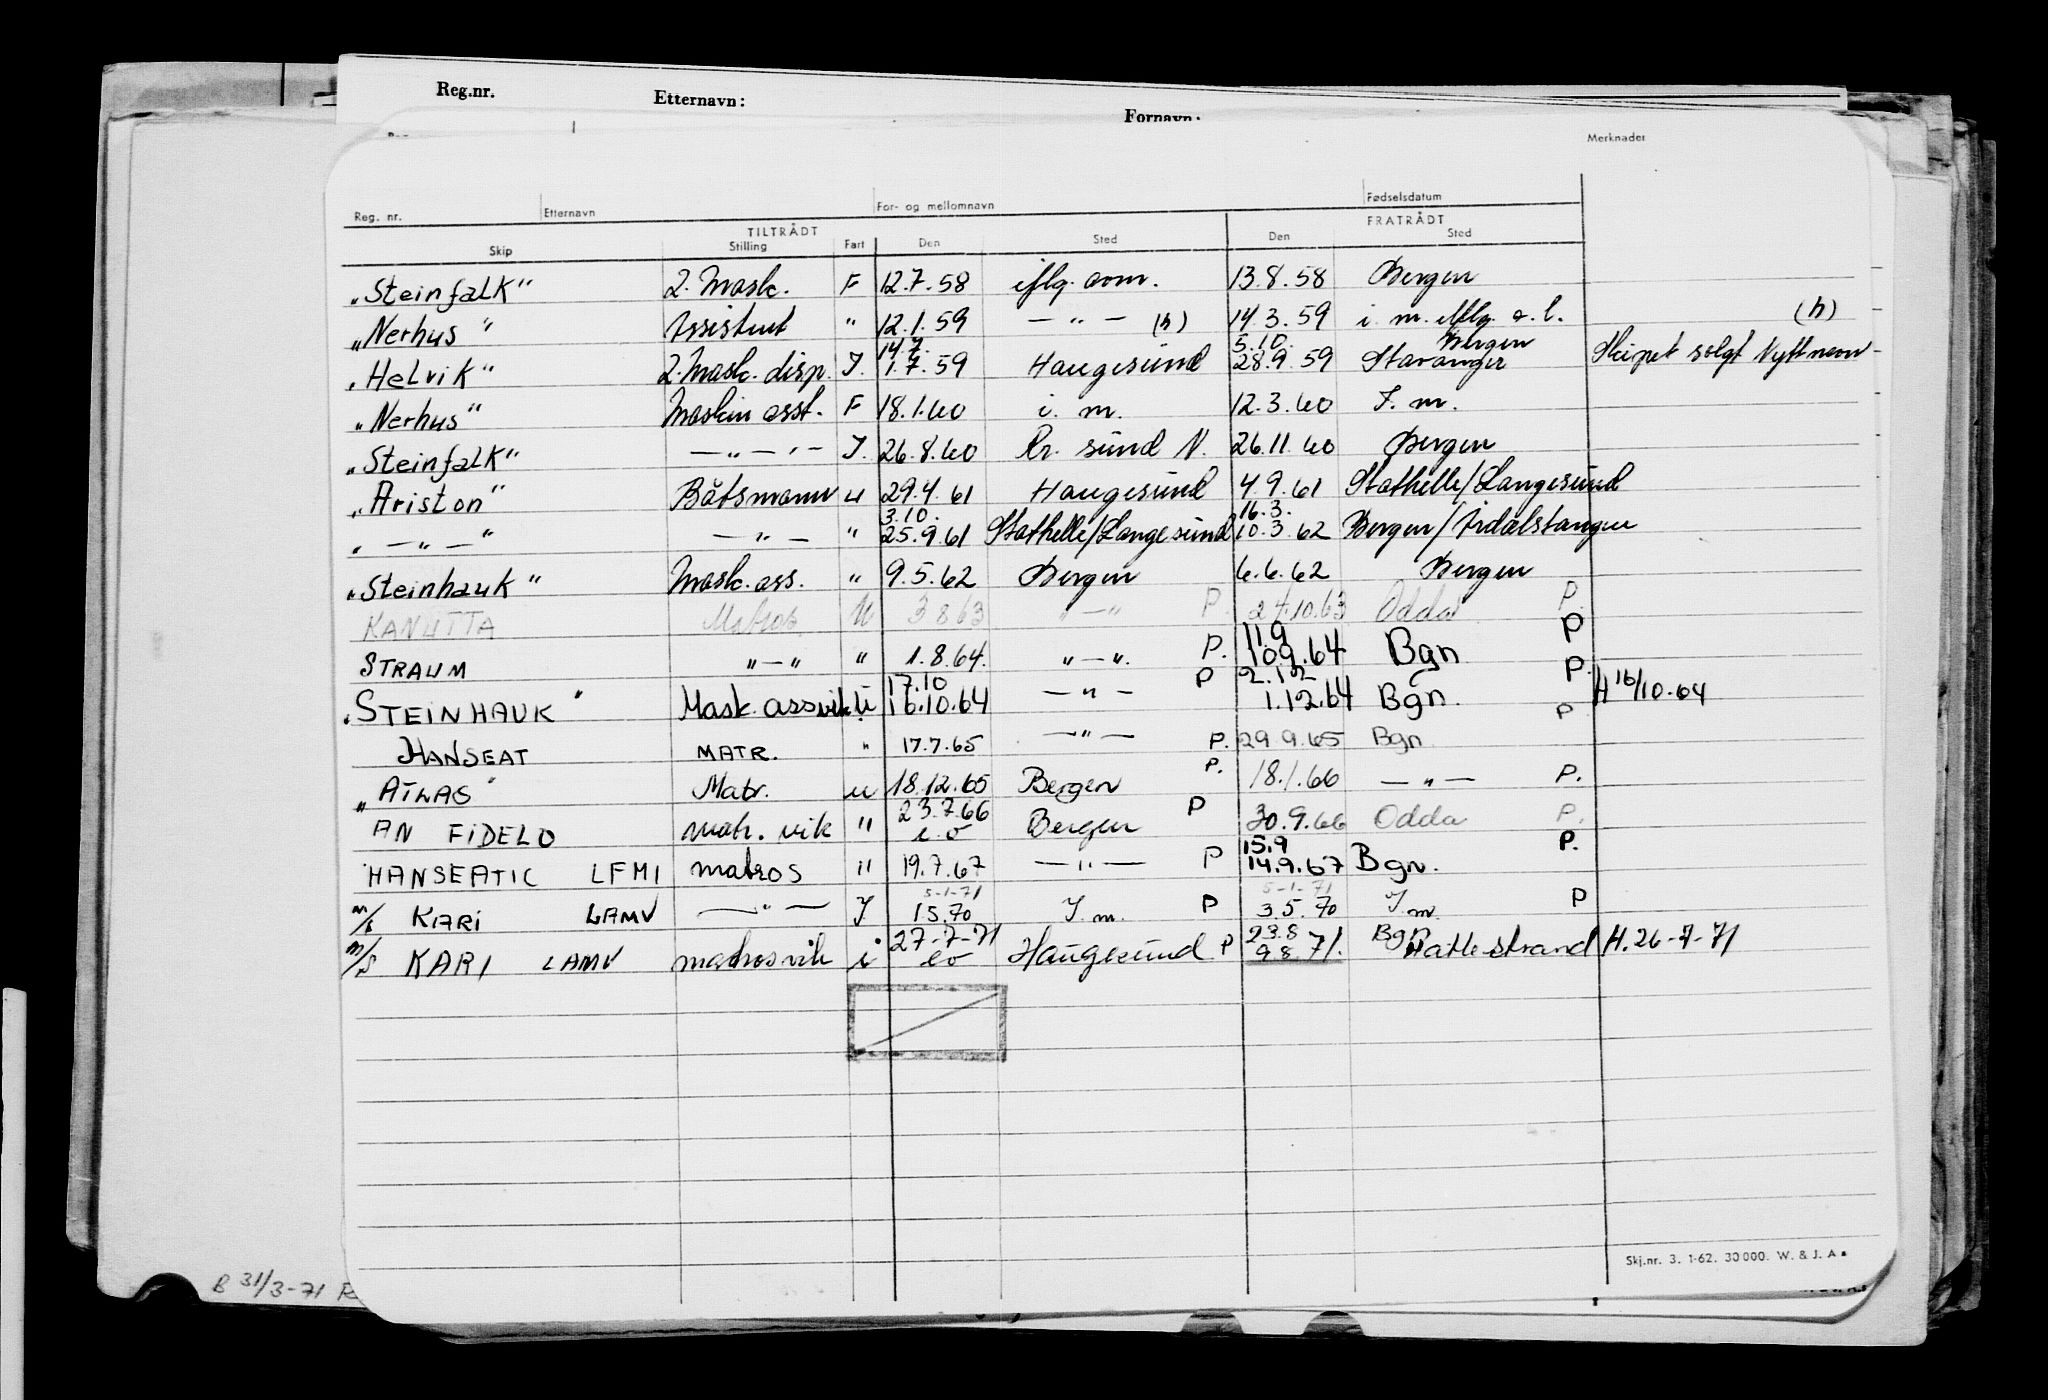 Reg.nr. Etternavn: Fornavn:
Merknader
Reg. nr. Etternavn For- og mellomnavn Fødselsdatum
TILTRÅDT FRATRÅDT
Skip Stilling Fart Den Sted Den Sted
„Steinfalk" 2. Mask. F 12.7.58 iflg. om. 13.8.58 Bergen
„Nerhus" Assistent " 12.1.59 — " — (h) 14.3.59 i. m. iflg. o. l. (h)
14.7. 5.10. Bergen
„Helvik" 2. Mask. disp. I. 1.7.59 Haugesund 28.9.59 Stavanger Skipet solgt Nytt navn
„Nerhus" Maskin asst. F 18.1.60 i. m. 12.3.60 I. m.
„Steinfalk" — " — " — I. 26.8.60 Kr. sund N. 26.11.60 Bergen
„Ariston" Båtsmann u 29.4.61 Haugesund 4.9.61 Stathelle/Langesund
3.10. 16.3.
„ — " — " — " — " 25.9.61 Stathelle/Langesund 10.3.62 Bergen/Årdalstangen
„Steinhauk" Mask. ass. " 9.5.62 Bergen 6.6.62 Bergen
KANUTTA Matros U 3 8 63 " — " P. 24.10.63 Odda P.
11 9
STRAUM " — " " 1.8.64. " — ". P. 10.9.64 Bgn P
17.10 2.12
„STEINHAUK" Mask. assvik U 16.10.64 — " — P 1.12.64 Bgn. P. H 16/10-64
HANSEAT MATR. " 17.7.65 — " — P. 29 9.65 Bgn P
„ATLAS" Matr. u 18.12.65 Bergen P. 18.1.66 — " — P.
23.7.66
AN FIDELO matr. vik " e.o Bergen P 30.9.66 Odda P.
15.9
HANSEATIC LFMI matros " 19.7.67 — " — P 14.9.67 Bgn. P.
5-1-71 5-1-71
m/s KARI LAMV — " — I 1 5.70 I. m. P 3.5.70 I. m. P
27-7-71 23.8 Bgn
m/s KARI LAMV matrosvik i eo Haugesund P 9.8.71. Hattlestrand H. 26-7-71
Skj.nr. 3. 1-62. 30 000. W. & J. A
B 31/3-71